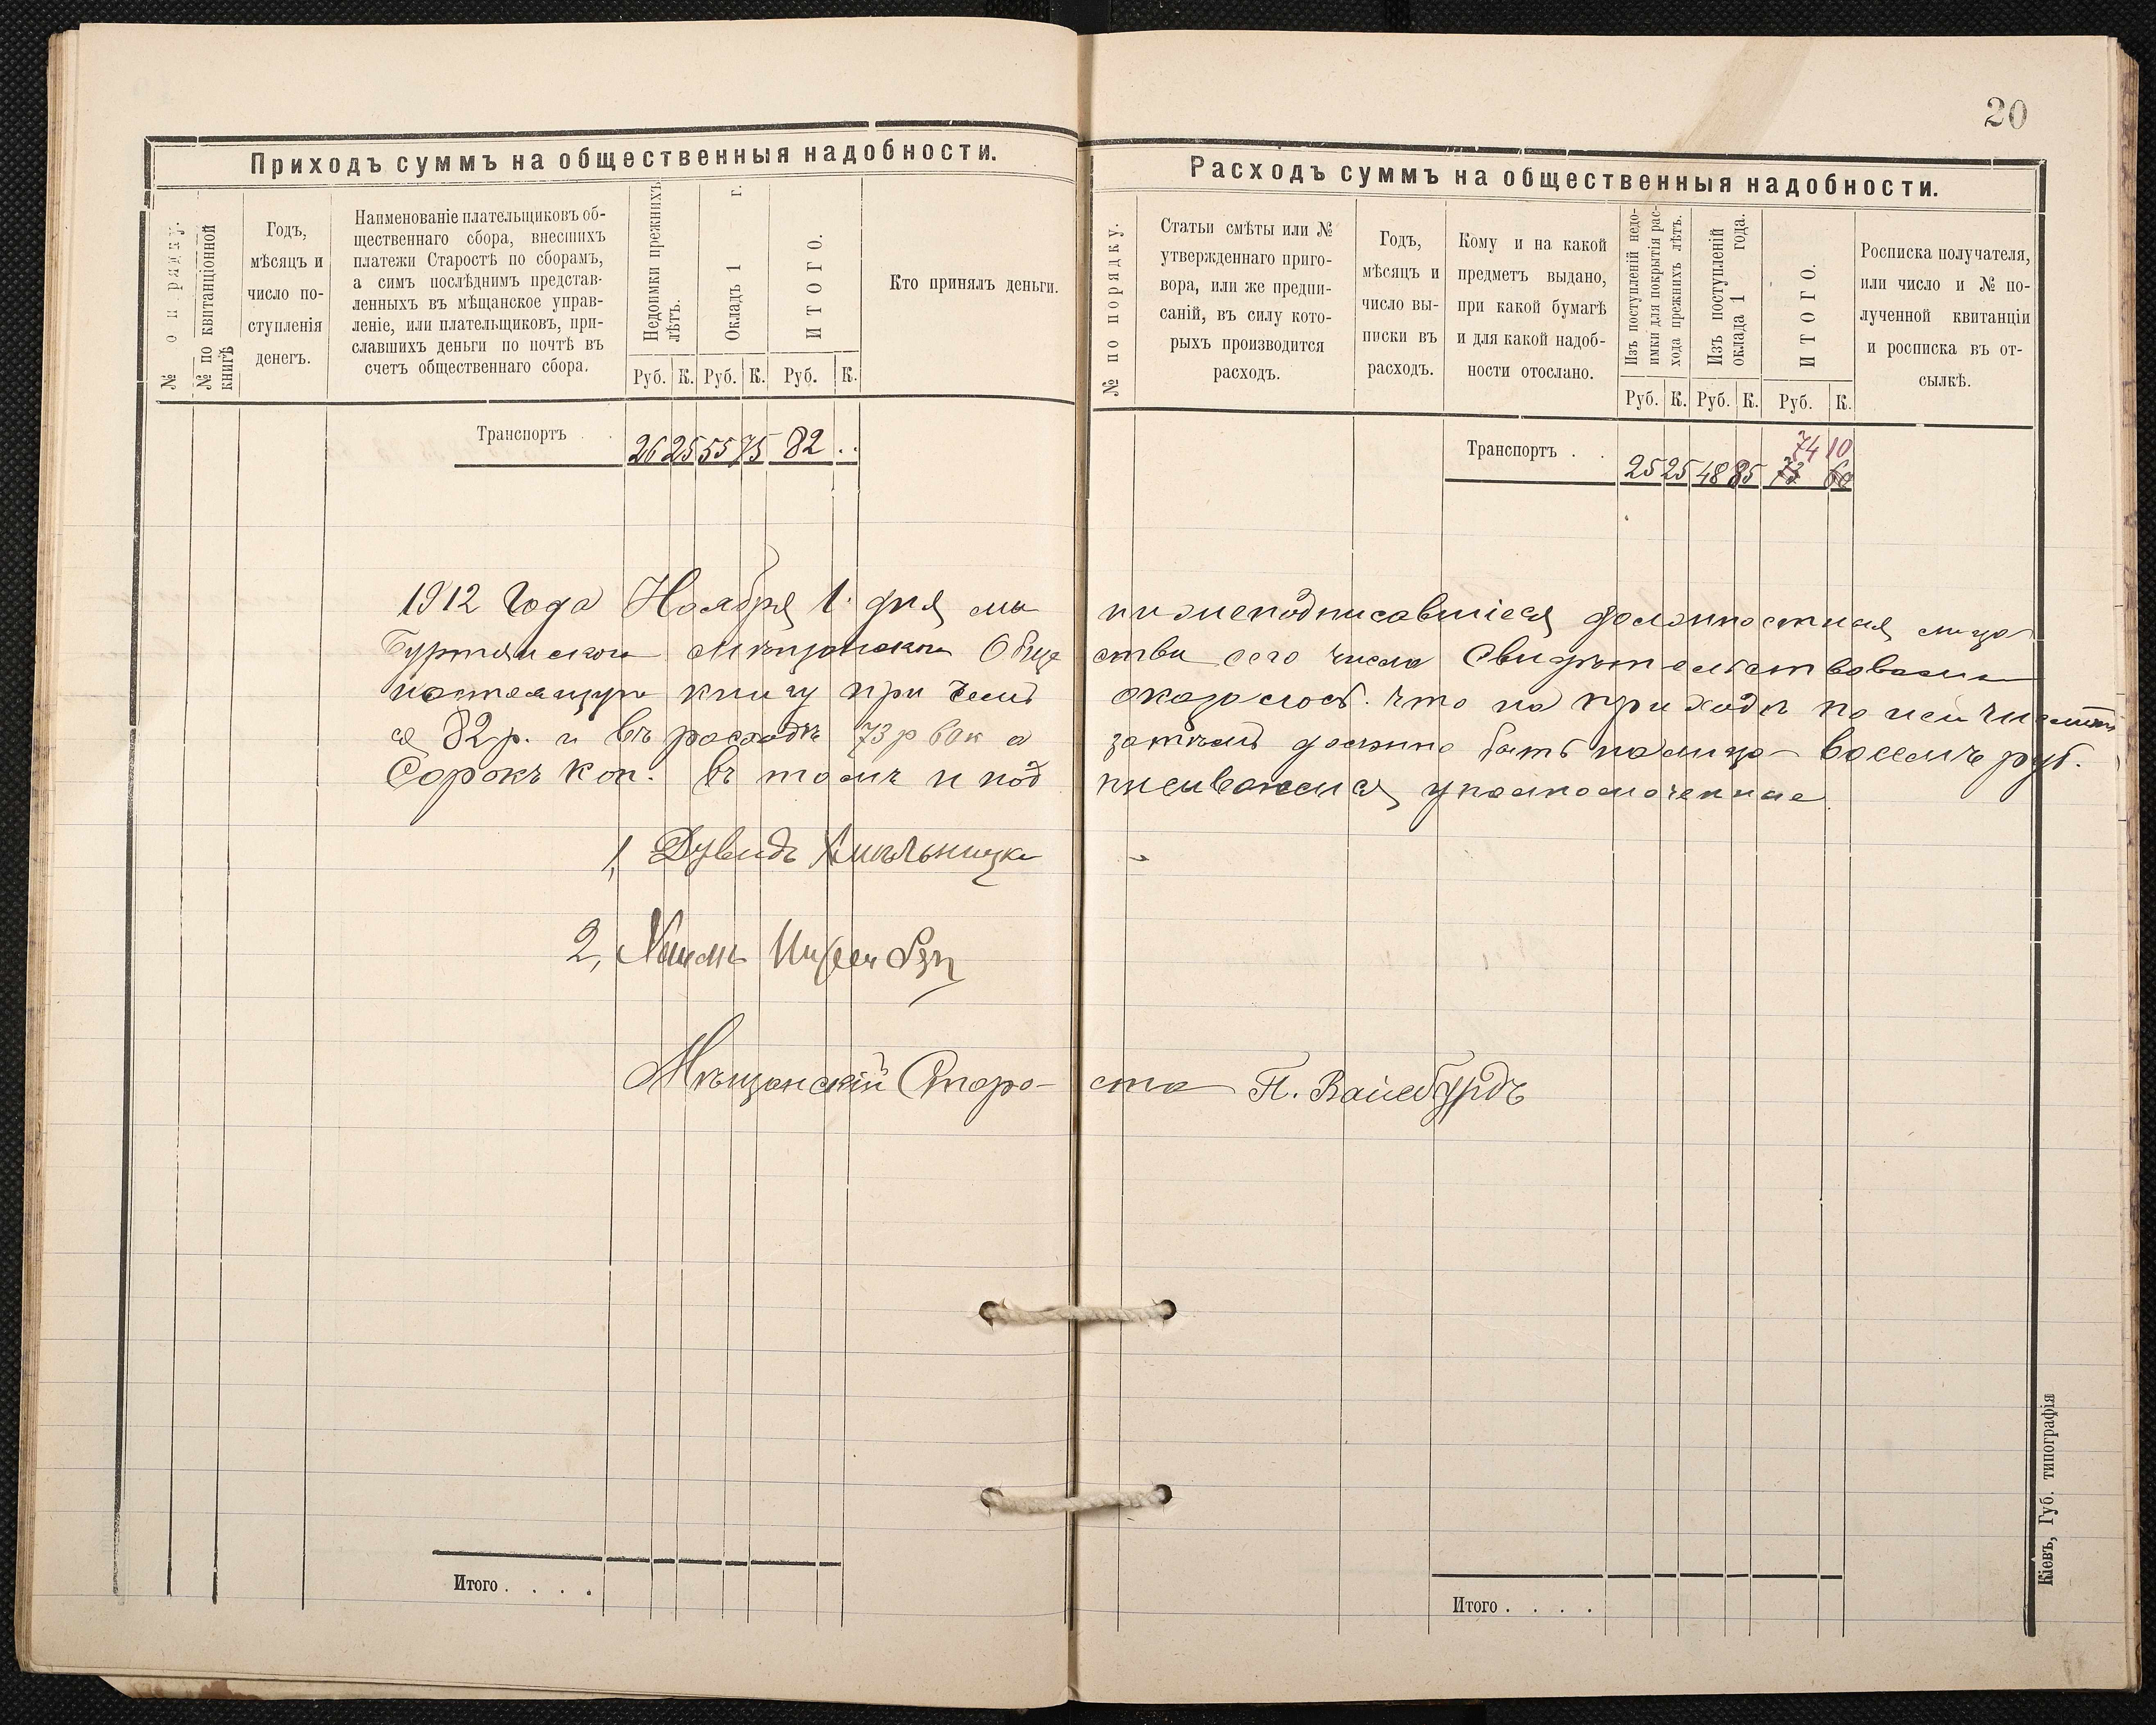 20
Приходъ суммъ на общественныя надобности.
№ по ряду.
№ по квитанціонной
книгѣ
Годъ,
мѣсяцъ и
число по-
ступленія
денегъ.
Наименованіе плательщиковъ об-
щественнаго сбора, внесшихъ
платежи Старостѣ по сборамъ,
а симъ послѣднимъ представ-
ленныхъ въ мѣщанское управ-
леніе, или плательщиковъ, при-
славшихъ деньги по почтѣ въ
счетъ общественнаго сбора.
Недоимки прежнихъ
лѣтъ.
Окладъ 1 г.
ИТОГО.
Кто принялъ деньги.
Руб. К. Руб. К. Руб. К.
Транспортъ . . 26 25 55 75 82 . .
Расходъ суммъ на общественныя надобности.
№ по порядку.
Статьи смѣты или №
утвержденнаго приго-
вора, или же предпи-
саній, въ силу кото-
рыхъ производится
расходъ.
Годъ,
мѣсяцъ и
число вы-
писки въ
расходъ.
Кому и на какой
предметъ выдано,
при какой бумагѣ
и для какой надоб-
ности отослано.
Изъ поступленій недо-
имки для покрытія рас-
хода прежнихъ лѣтъ.
Изъ поступленій
оклада 1 года.
ИТОГО.
Росписка получателя,
или число и № по-
лученной квитанціи
и росписка въ от-
сылкѣ.
Руб. К. Руб. К. Руб. К.
74 10
Транспортъ . . 25 25 48 85 73 60
1912 Года Ноября 1 дня мы нижеподписавшіеся должностныя лица
мѣщанскаго Обще ства сего числа Свидѣтельствовали
настоящую книгу при чемъ оказалось что на приходѣ по ней числит
ся 82 р. и въ расходѣ 73 р 60 к а затѣмъ должно быть налицо восемь руб.
Сорокъ коп. въ томъ и под писываемся уполномоченные
1, Дувидъ Хмѣльницки
2,
Мѣщанскій Старо- ста П. Вайсбурдъ
Итого . . . .
Итого . . . .
Кіевъ, Губ. типографія